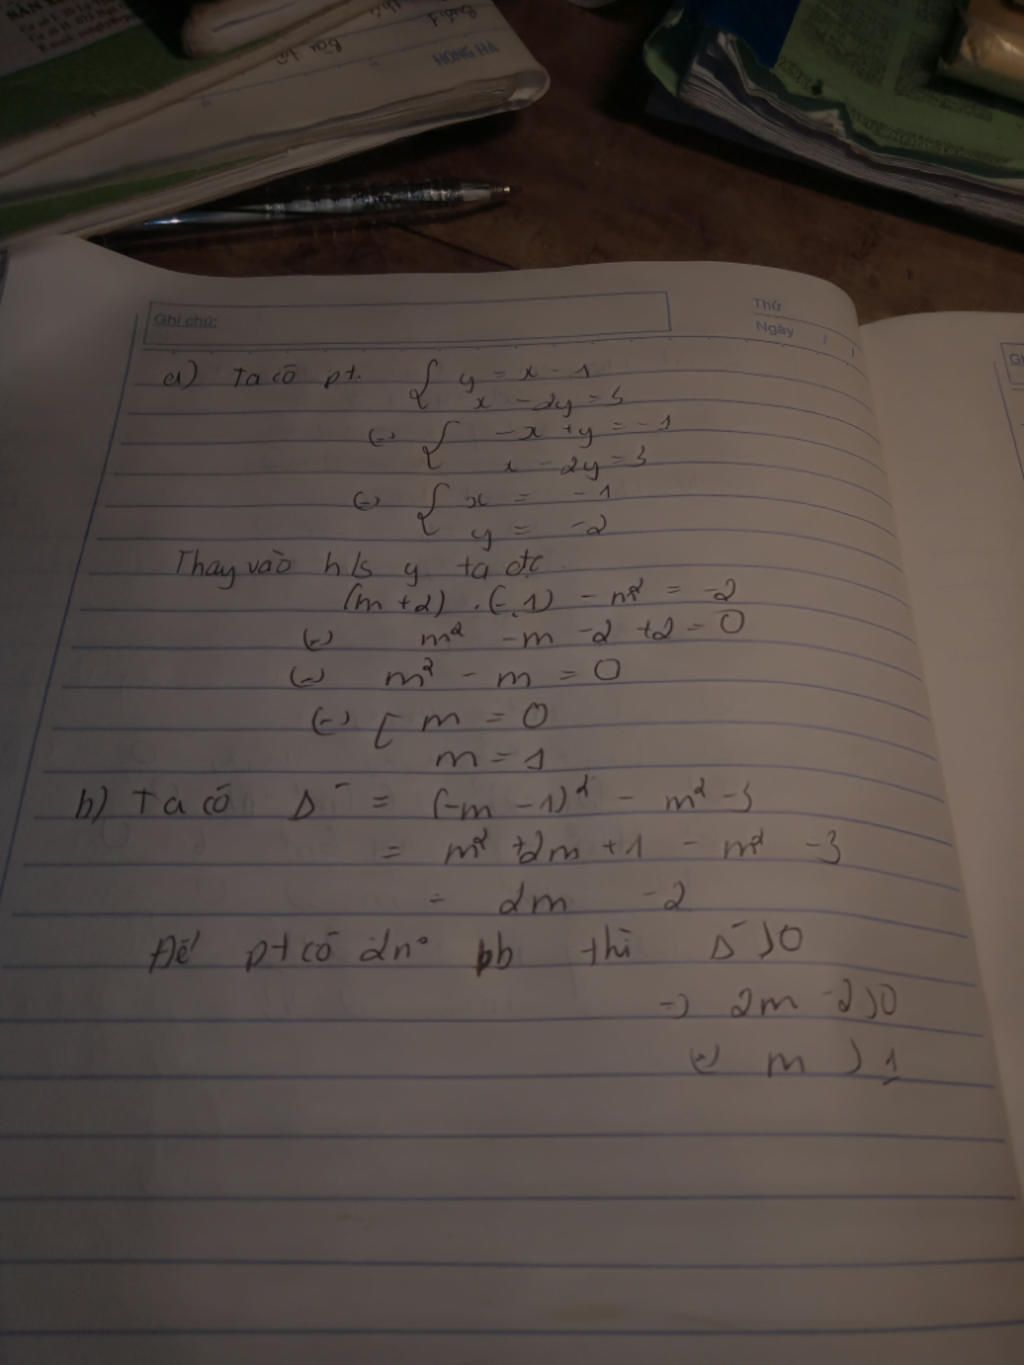 HỒNG HÀ
Ghi chú:
Thứ
Ngày / /
a) Ta có pt. { y = x - 1
x - 2y = 3
(=) { -x + y = -1
x - 2y = 3
(=) { x = -1
y = -2
Thay vào h/s y ta đc
(m + 2) . (-1) - m² = -2
(=) m² - m - 2 + 2 = 0
(=) m² - m = 0
(=) [ m = 0
m = 1
b) Ta có Δ' = (-m - 1)² - m² - 3
= m² + 2m + 1 - m² - 3
= 2m - 2
Để pt có 2n° pb thì Δ' > 0
=> 2m - 2 > 0
(=) m > 1